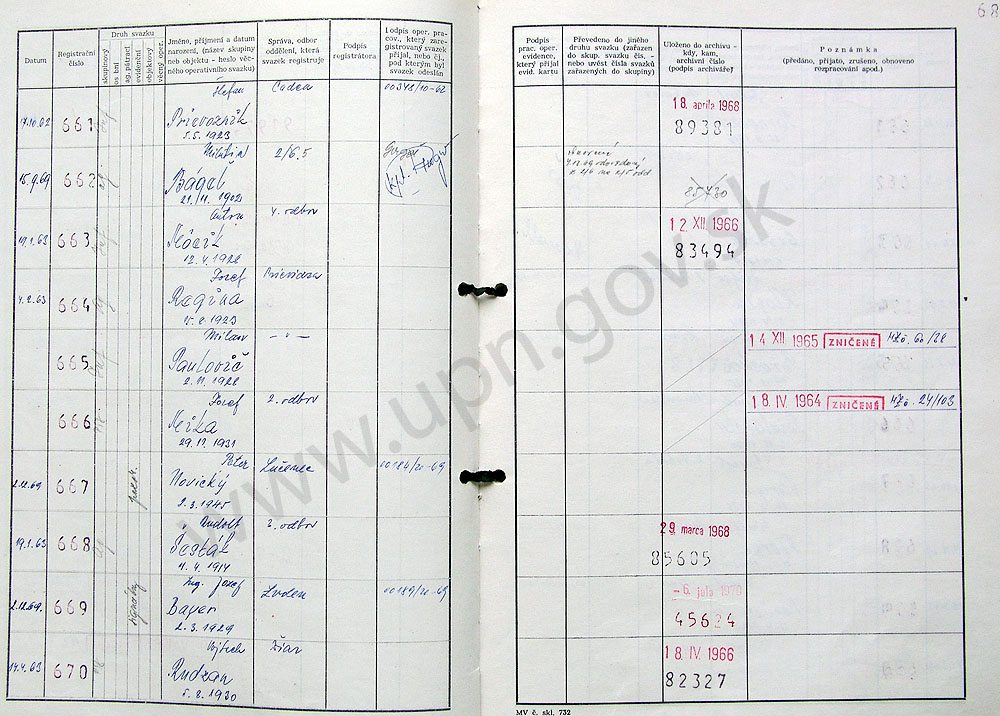 68
Datum
Registrační číslo
Druh svazku
skupinový
os bní
ag. pátrací
evidenční
objektový
věcný oper.
Jméno, příjmení a datum
narození, (název skupiny
neb objektu - heslo věc-
ného operativního svazku)
Správa, odbor
oddělení, která
svazek registruje
Podpis
registrátora
Podpis oper. pra-
cov., který zare-
gistrovaný svazek
přijal, nebo čj.,
pod kterým byl
svazek odeslán
Podpis
prac. oper.
evidence,
který přijal
evid. kartu
Převedeno do jiného
druhu svazku (zařazen
do skup. svazku čís, -
nebo uvést čísla svazků
zařazených do skupiny)
Uloženo do archivu -
kdy, kam,
archivní číslo
(podpis archiváře)
Poznámka
(předáno, přijato, zrušeno, obnoveno
rozpracování apod.)
Štefan Čadca 00348/10-62
17.10.62 661 Prievozník
5.5.1923
18. apríla 1968
89381
2/6.5
15.9.69 662
21./11. 1902
25730
Anton 4. odbor
663
12.4.1928
12 XII. 1966
83494
Jozef Prievidza
4.2.63 664 Regina
15.8.1923
Milan - " -
665 Pavlovič
2.11.1928
14 XII. 1965 ZNIČENÉ
Jozef 2. odbor
666
29.11.1931
18. IV. 1964 ZNIČENÉ 24/103
Peter Lučenec 00184/20-69
2.12.69 667 Novický
2.3.1945
Rudolf 2. odbor
19.1.63 668 Šesták
11.4.1914
29. marca 1968
85605
Ing. Jozef Zvolen 00189/20-69
2.12.69. 669 signálny Bayer
2.3.1929
- 6. júla 1970
45624
Vojtech Žiar
14.4.63 670 Rudzan
5.8.1930
18. IV. 1966
82327
MV č. skl. 732
www.upn.gov.sk